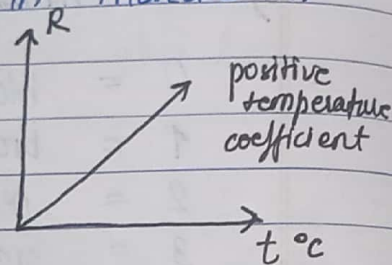 R
positive
temperature
coefficient
t °C